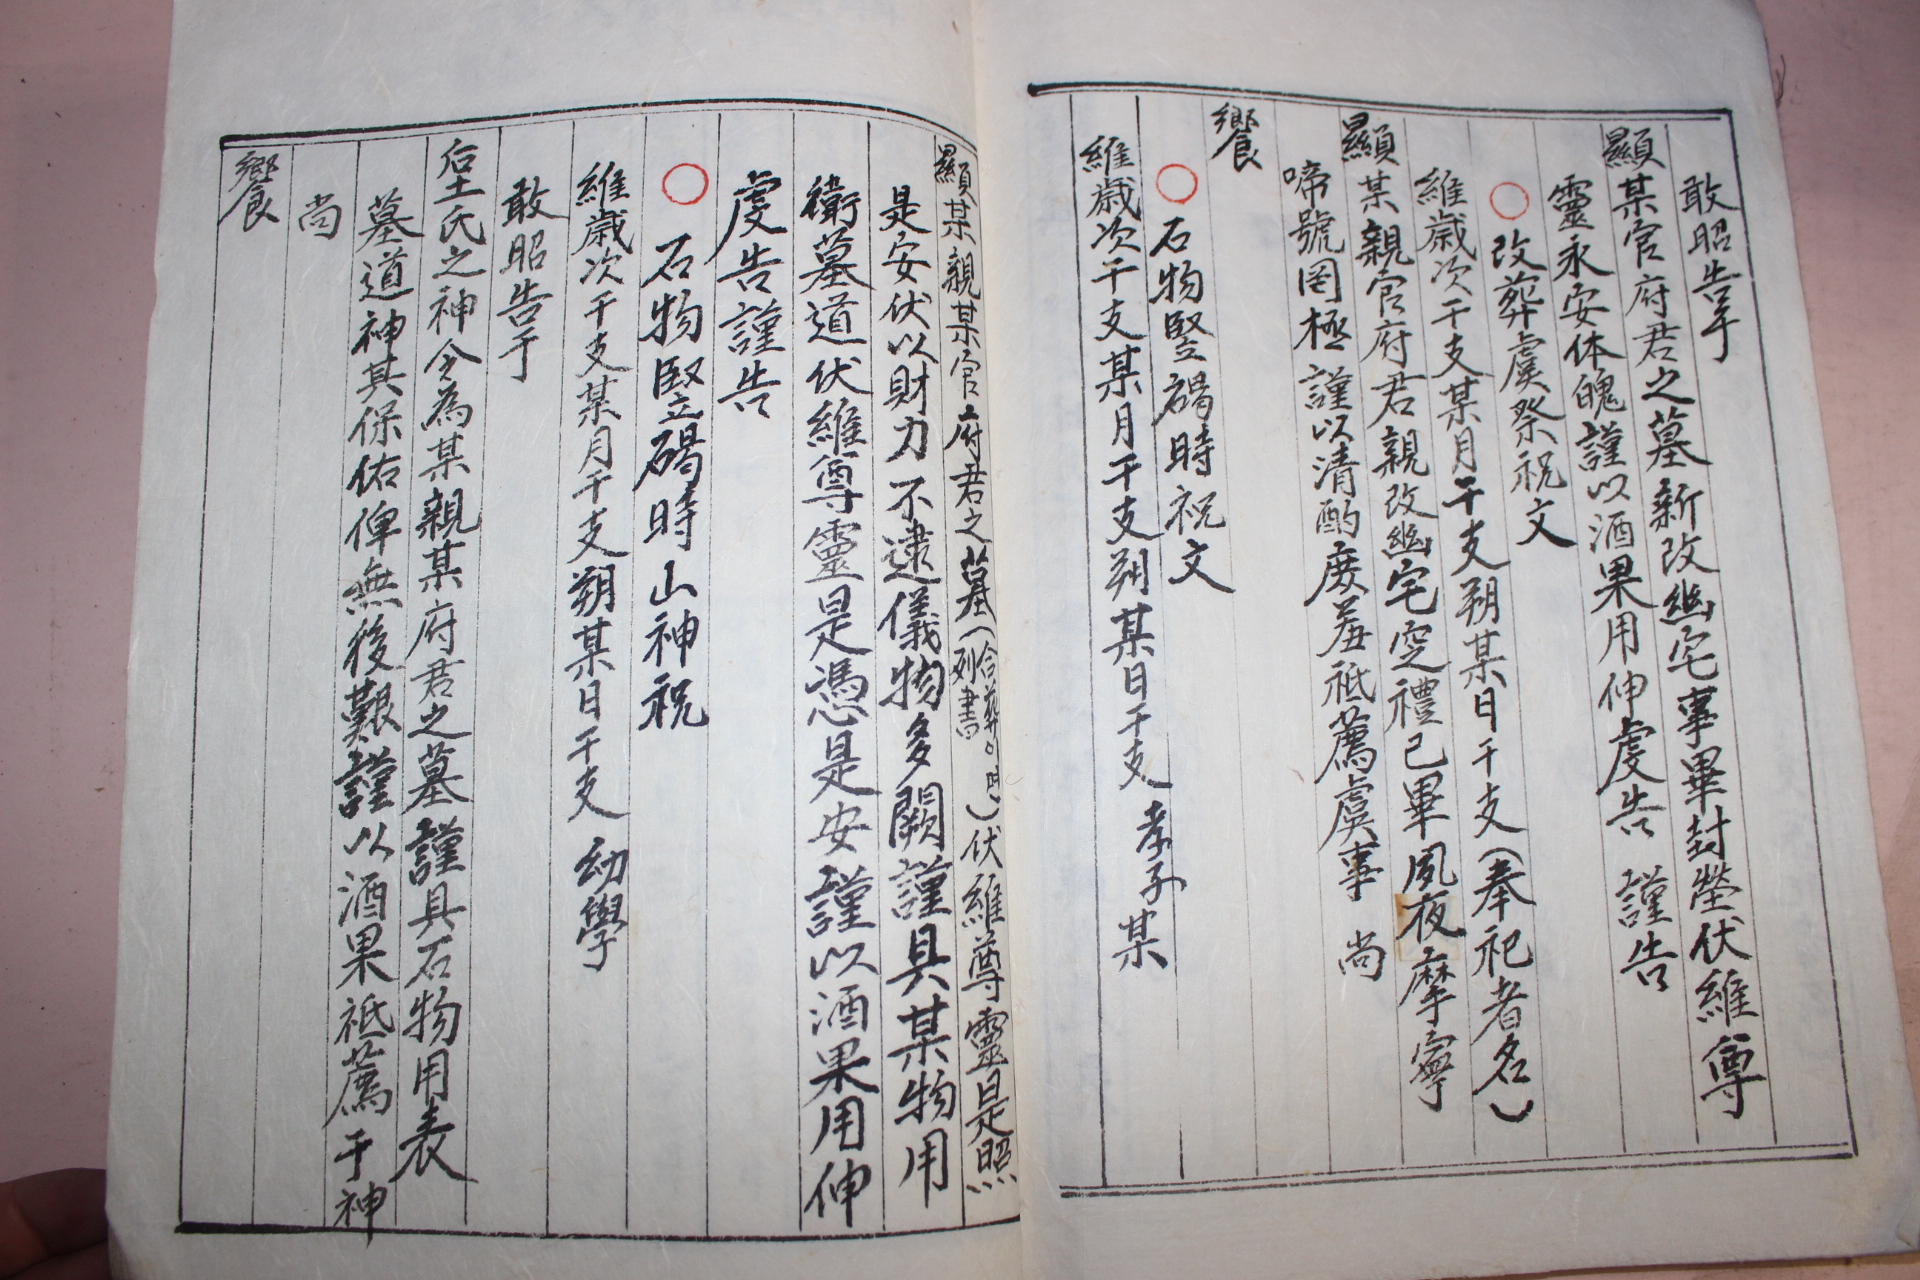 敢昭告于
顯某官府君之墓新改幽宅事畢封塋伏維尊
靈永安体魄謹以酒果用伸虔告 謹告
○改葬虞祭祝文
維歲次干支某月干支朔某日干支(奉祀者名)
顯某親官府君親改幽宅窆禮已畢夙夜摩寧
啼號罔極謹以清酌庶羞祗薦虞事 尚
饗
○石物竪碣時祝文
維歲次干支某月干支朔某日干支 孝子某
顯某親某官府君之墓(合葬이면 列書)伏維尊靈是照
是安伏以財力不逮儀物多闕謹具某物用
衛墓道伏維尊靈是憑是安謹以酒果用伸
虔告謹告
○石物竪碣時山神祝
維歲次干支某月干支朔某日干支 幼學
敢昭告于
后土氏之神今為某親某府君之墓謹具石物用表
墓道神其保佑俾無後艱謹以酒果祗薦于神
尚
饗